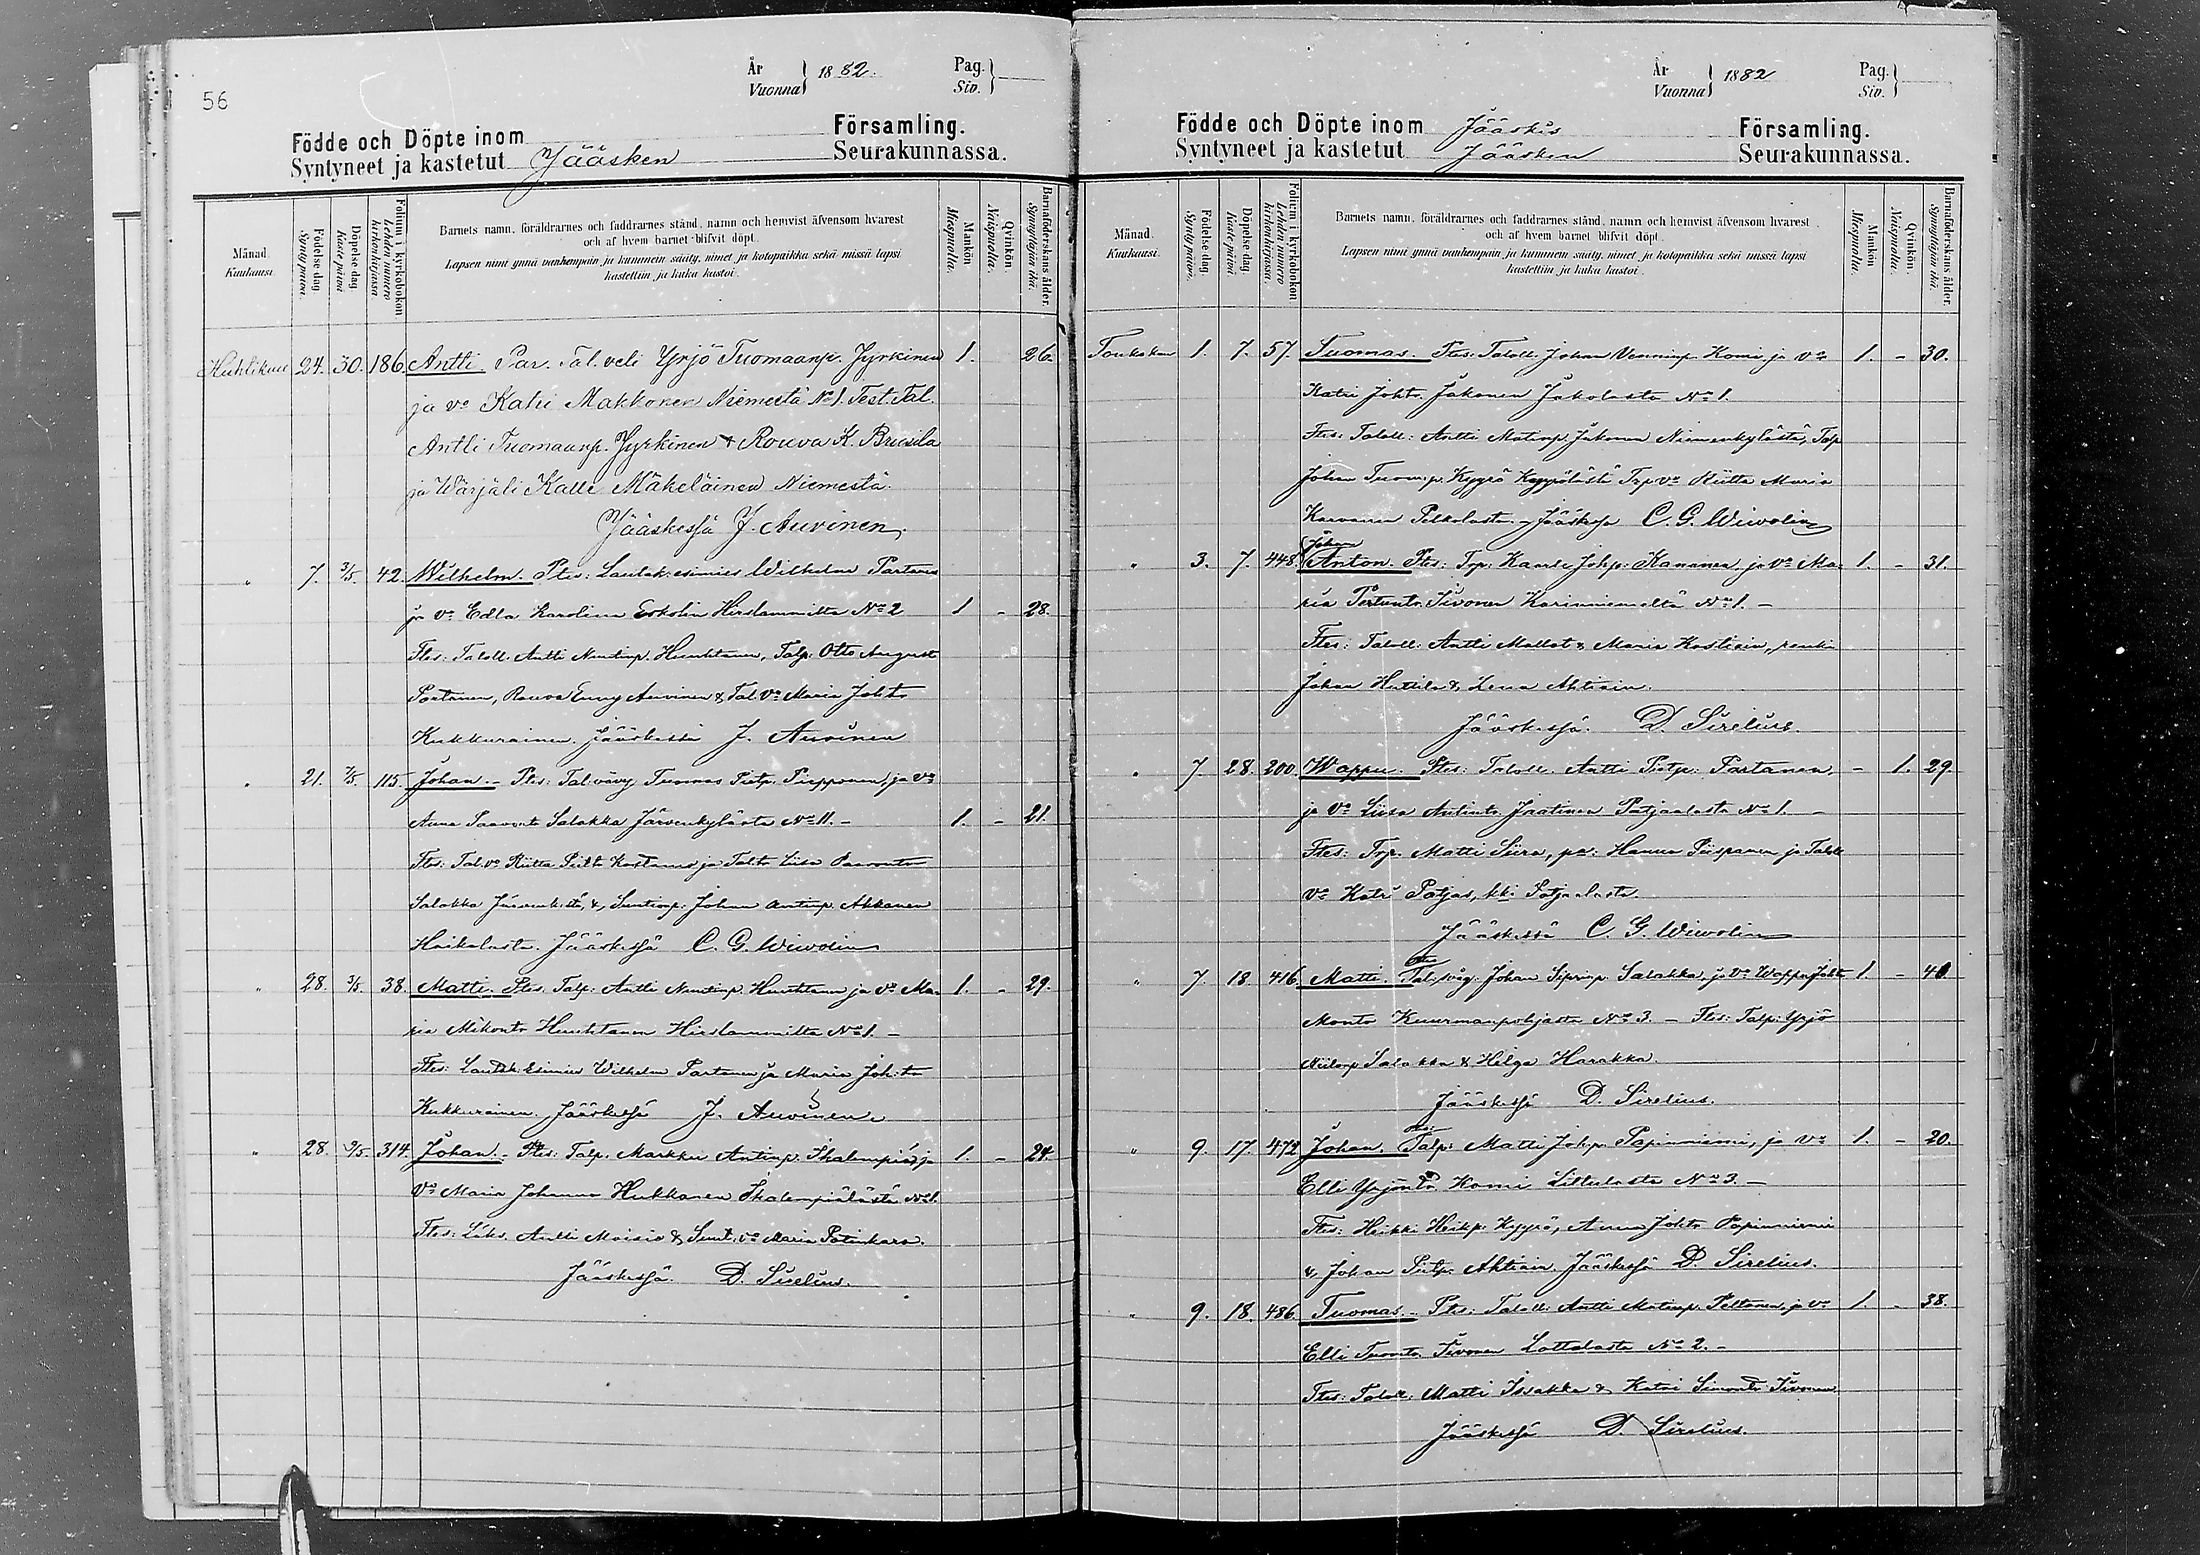 56
År
Vuonna 1882.
Pag.
Siv.
Födde och Döpte inom
Syntyneet ja kastetut Jääsken
Församling.
Seurakunnassa.
Månad.
Kuukausi.
Födelse dag.
Syntypäivä.
Döpelse dag.
Kaste päivä
Folium i kyrkobokon
Lehden numero
kirkonkirjassa
Barnets namn, föräldrarnes och faddrarnes stånd, namn och hemvist äfvensom hvarest
och af hvem barnet blifvit döpt.
Lapsen nimi ynnä vanhempain ja kummein sääty, nimet ja kotopaikka sekä missä lapsi
kastettiin ja kuka kastoi.
Mankön.
Miespuolta.
Qvinkön
Naispuolta.
Barnaföderskans ålder.
Synnyttäjän ikä.
Huhtikuu 24. 30. 186 Antti. Par. Tal. veli Yrjö Tuomaanp. Jyrkinen 1. 26.
ja vo Katri Makkonen Niemestä No 1. Test. Tal.
Antti Tuomaanp. Jyrkinen & Rouva K. Brusila
ja Wärjäli Kalle Mäkeläinen Niemestä.
Jääskessä J. Auvinen.
" 7. 3/5 42. Wilhelm. Ptes: Lautak: esimies Wilhelm Partanen
ja vo Edla Karolina Eskolin Hirslammilta No 2 1 - 28.
Ftes: Taloll: Antti Huuhtanen, Talp: Otto August
Partanen, Rouva Emmy Auvinen & Tal. vo Maria Johtr
Kukkurainen. Jääskessä J. Auvinen
" 21. 7/5. 115. Johan. - Ptes: Tal. vävy Tuomas Pietp. Piepponen, ja vo
Anna Salakka Järvenkylästä No 11. - 1. - 21.
Ftes: Tal. vo Riitta ja Taltr Liisa
Salakka & Johan Antinp. Akkanen
Haikolasta. Jääskessä C. G. Wiwolin
" 28. 3/5. 38. Matti. Ptes. Talp: Antti Huuhtanen ja vo Ma- 1. - 29.
ria Mikontr Huuhtanen Hirslammilta No 1. -
Ftes: Lautak: Esimies Wilhelm Partanen ja Maria Joh: tr
Kukkurainen. Jääskessä J. Auvinen
" 28. 9/5. 314. Johan. - Ptes: Talp. Markku Antinp. ja 1. - 24.
vo Maria Johanna Hukkanen No 1.
Ftes: Antti Moisio & vo Maria
Jääskessä. D. Sirelius.
År
Vuonna 1882
Pag.
Siv.
Födde och Döpte inom Jääskis
Syntyneet ja kastetut Jääsken
Församling.
Seurakunnassa.
Månad.
Kuukausi.
Födelse dag.
Syntypäivä.
Döpelse dag.
Kaste päivä
Folium i kyrkobokon
Lehden numero
kirkonkirjassa.
Barnets namn, föräldrarnes och faddrarnes stånd, namn och hemvist äfvensom hvarest
och af hvem barnet blifvit döpt.
Lapsen nimi ynnä vanhempain ja kummein sääty, nimet ja kotopaikka sekä missä lapsi
kastettiin ja kuka kastoi.
Mankön
Miespuolta.
Qvinkön.
Naispuolta.
Barnaföderskans ålder.
Synnyttäjän ikä.
Toukokuu 1. 7. 57. Tuomas. Ptes: Taloll. Johan Komi ja vo 1. - 30.
Katri Johtr Jakonen Jakolasta No 1.
Ftes: Taloll: Antti Matinp. Jakonen Niemenkylästä, Talp
Johan Tuom: p. Kyyrö Kyyrölästä Trp vo Riitta Maria
Karvanen Pelkolasta. - Jääskessä C. G. Wiwolin
Johan
" 3. 7. 448 Anton. Ptes: Trp: Kaarle Joh: p: Kananen ja vo Ma- 1. - 31.
ria Sivonen Karinniemeltä No 1. -
Ftes: Taloll: Antti Mallat & Maria Kostiain, renki
Johan Huttila & Lena Ahtiain.
Jääskessä. D. Sirelius.
" 7 28. 200 Wappu. Ptes: Taloll. Antti Pietp: Partanen, - 1. 29.
ja vo Liisa Antintr Jaatinen Patjaalasta No 1. -
Ftes: Trp. Matti Siira, Hannu Piispanen ja Taloll
vo Katri Patjas, kki Patjaalasta.
Jääskessä C. G. Wiwolin
" 7. 18. 416 Matti. Tal. väg. Johan Salakka, ja vo Wappu Johtr 1. - 40.
Monto Kuurmanpohjasta No 3. - Ftes: Talp: Yrjö
Salakka & Helga Harakka.
Jääskessä D. Sirelius.
" 9. 17. 472 Johan. Talp: Matti Joh: p. Papinniemi, ja vo 1. - 20.
Elli Yrjöntr Komi No 3. -
Ftes: Heikki Heikp: Kyyrö, Anna Johtr Papinniemi
& Johan Pietp: Ahtiain. Jääskessä D. Sirelius.
" 9. 18. 486 Tuomas. - Ptes: Taloll: Antti Matinp. Peltonen, ja vo 1. - 38.
Elli Tuomtr Sivonen Lottolasta No 2. -
Ftes: Taloll: Matti & Katri Simontr Sivonen
Jääskessä D. Sirelius.